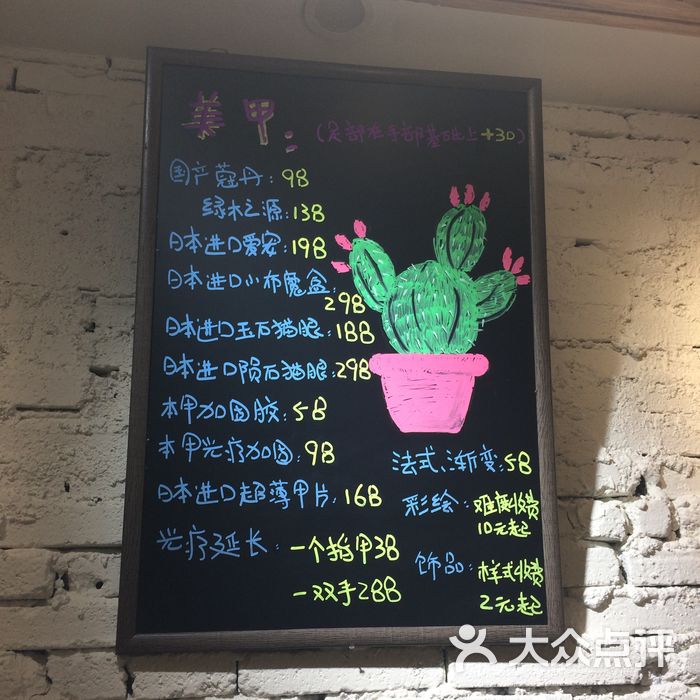 美甲：（足部在手部基础上+30）
国产蔻丹：98
绿木之源：138
日本进口爱安：198
日本进口小布魔盒：
298
日本进口玉石猫眼：188
日本进口陨石猫眼：298
本甲加固胶：58
本甲光疗加固：98
日本进口超薄甲片：168
光疗延长：一个指甲38
一双手288
法式、渐变：58
彩绘：难度收费
10元起
饰品：样式收费
2元起
大众点评